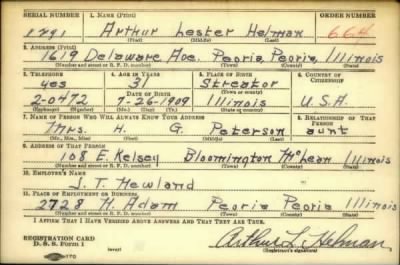 SERIAL NUMBER 1. NAME (Print) ORDER NUMBER
1791 Arthur Lester Helman 664
(First) (Middle) (Last)
2. ADDRESS (Print)
1619 Delaware Ave. Peoria, Peoria, Illinois
(Number and street or R. F. D. number) (Town) (County) (State)
3. TELEPHONE 4. AGE IN YEARS 5. PLACE OF BIRTH 6. COUNTRY OF CITIZENSHIP
yes 31 Streator
DATE OF BIRTH (Town or county)
2-0472 7-26-1909 Illinois U.S.A.
(Exchange) (Number) (Mo.) (Day) (Yr.) (State or country)
7. NAME OF PERSON WHO WILL ALWAYS KNOW YOUR ADDRESS 8. RELATIONSHIP OF THAT PERSON
Mrs. H. G. Peterson aunt
(Mr., Mrs., Miss) (First) (Middle) (Last)
9. ADDRESS OF THAT PERSON
108 E. Kelsey Bloomington McLean Illinois
(Number and street or R. F. D. number) (Town) (County) (State)
10. EMPLOYER'S NAME
J. T. Hewland
11. PLACE OF EMPLOYMENT OR BUSINESS
2728 N. Adam Peoria Peoria Illinois
(Number and street or R. F. D. number) (Town) (County) (State)
I AFFIRM THAT I HAVE VERIFIED ABOVE ANSWERS AND THAT THEY ARE TRUE.
REGISTRATION CARD
D. S. S. Form 1 (over) Arthur L. Helman
(Registrant's signature)